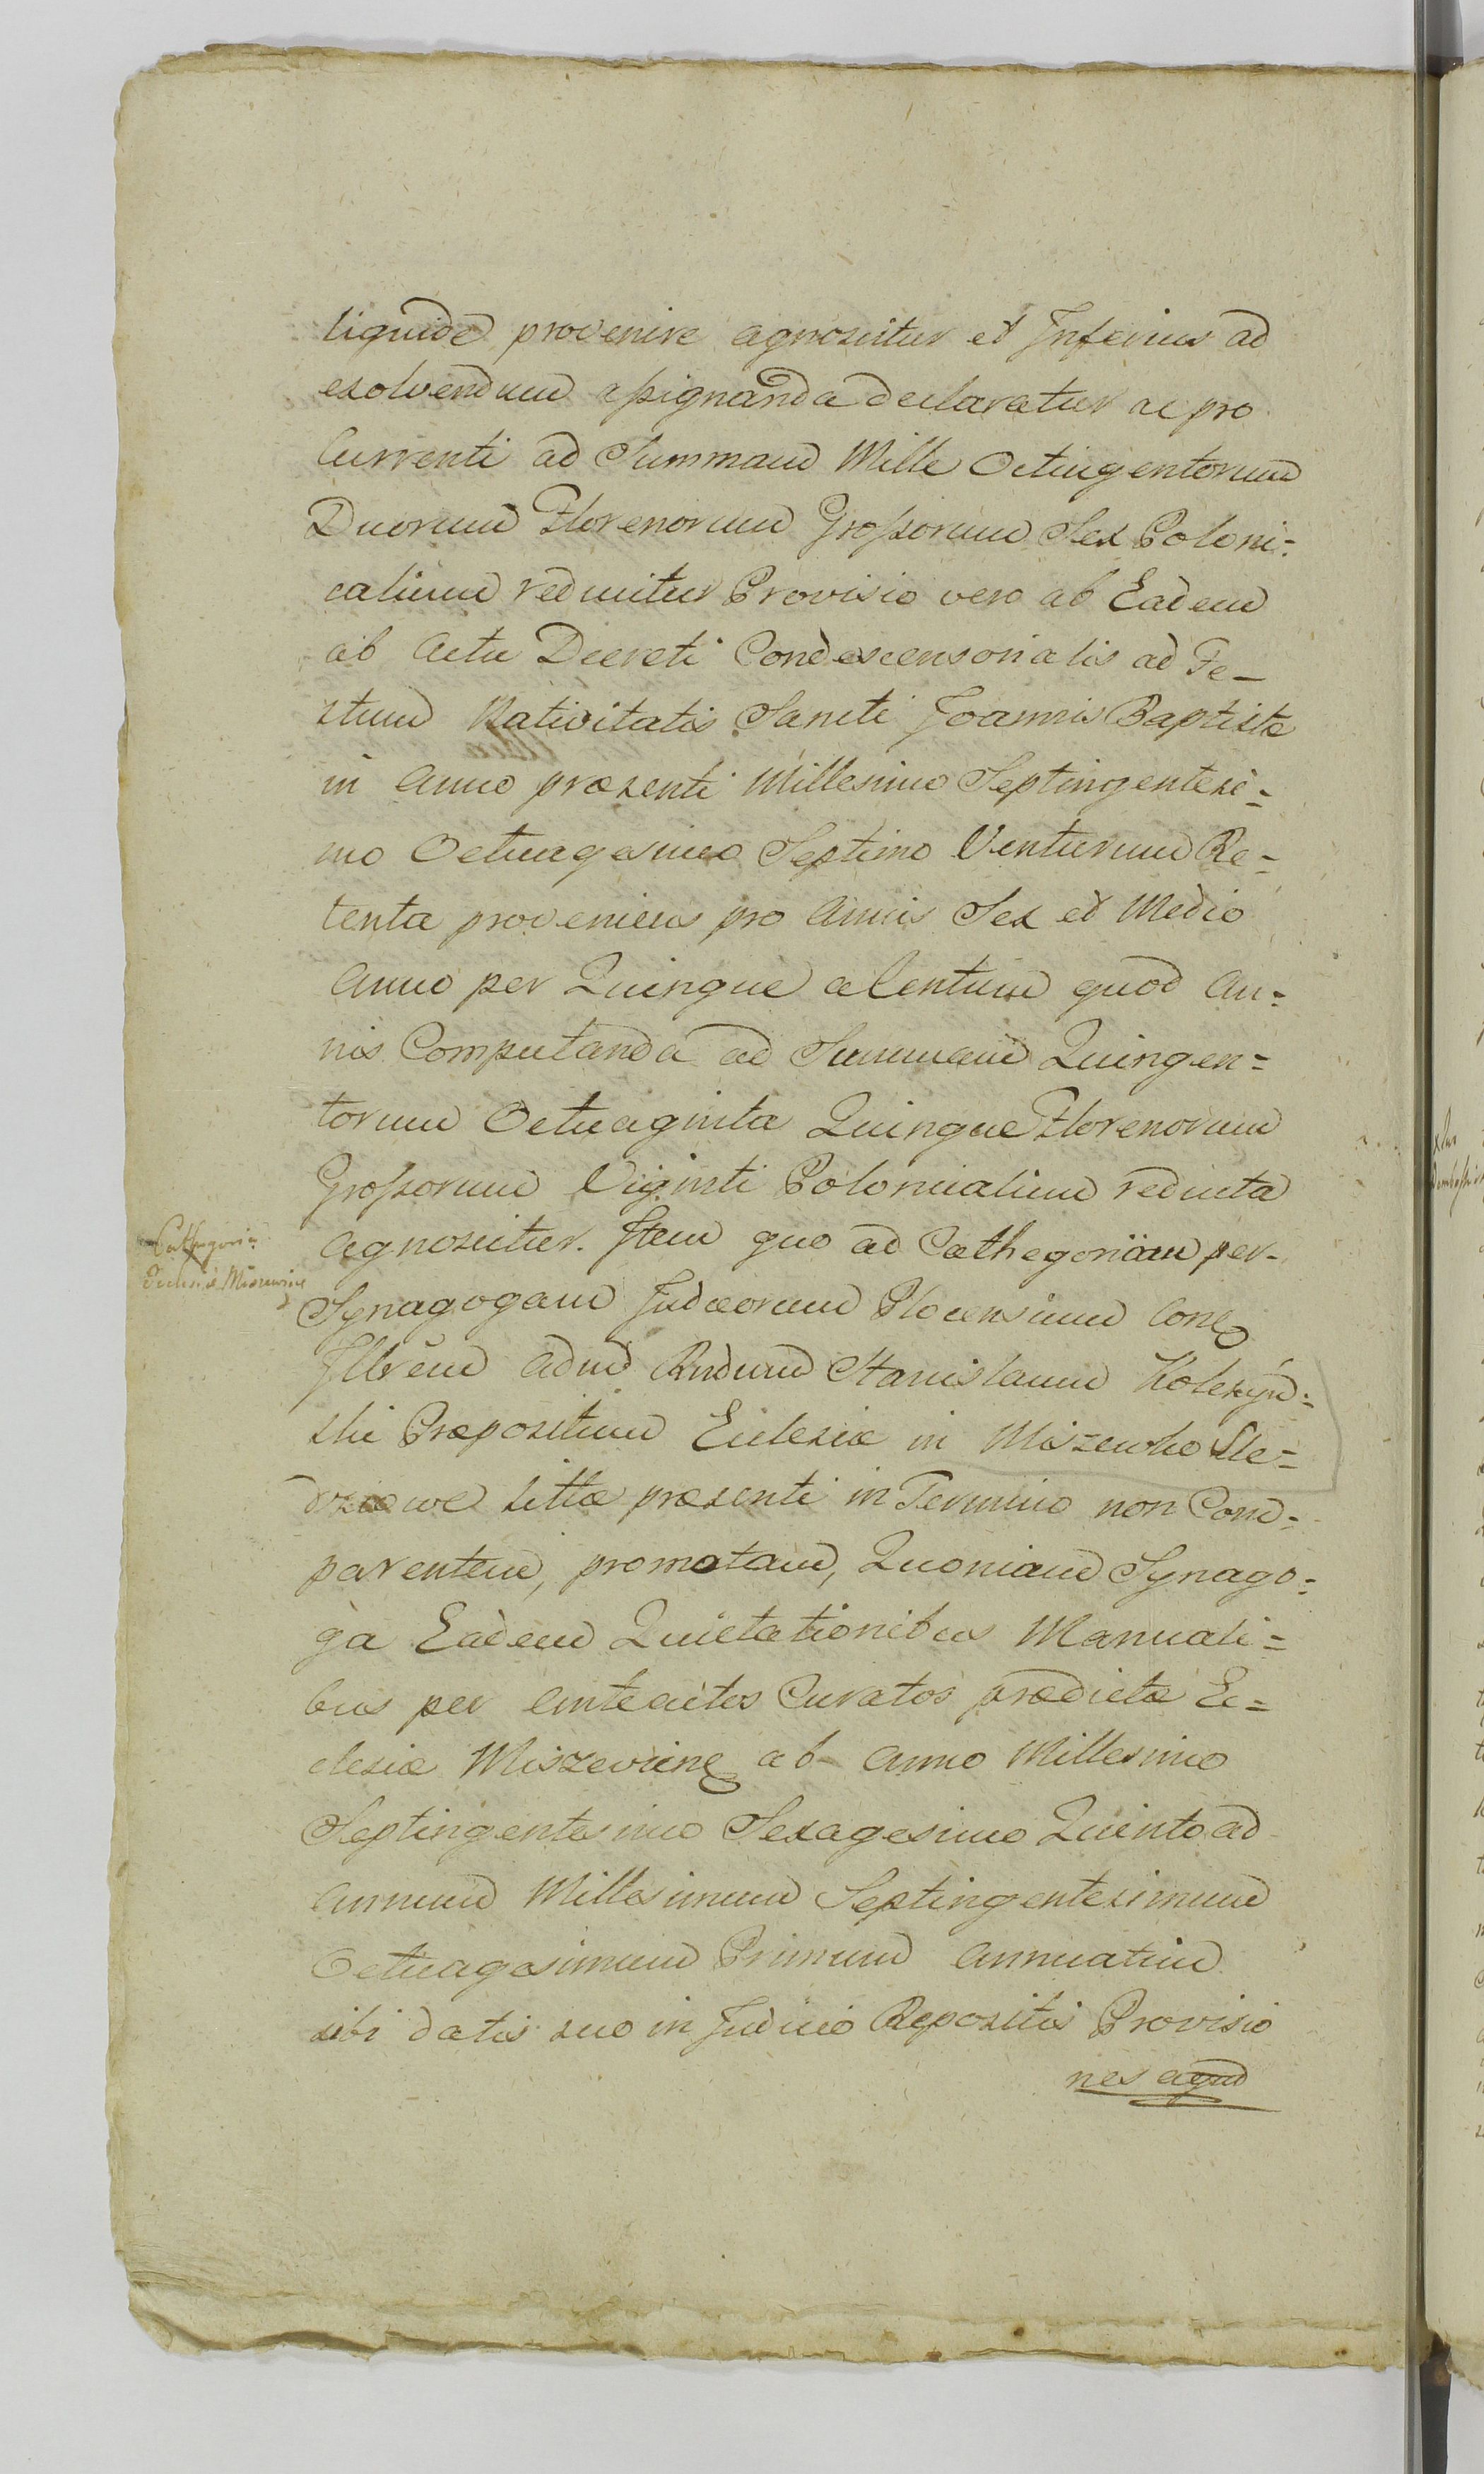 liquide provenire agnoscitur et Inferius ad
exolvendum assignanda declaratur ac pro
Currenti ad Summam Mille Octingentorum
Duorum Florenorum Grossorum Sex Poloni=
calium reducitur Provisio vero ab Eadem
ab Actu Decreti Condescensorialis ad Fe-
stum Nativitatis Sancti Joannis Baptistæ
in Anno præsenti Millesimo Septingentesi=
mo Octuagesimo Septimo Venturum Re=
tenta proveniens pro Annis Sex et Medio
Anno per Quinque a Centum quod An=
nis Computanda ad Summam Quingen=
torum Octuaginta Quinque Florenorum
Grossorum Viginti Polonicalium reducta
agnoscitur. Item quo ad Cathegoriam per
Cathegoria
Ecclesiæ
Synagogam Judæorum Plocensium
Stanislaum
ski Præpositum Ecclesiæ in Miszewko Ste=
præsenti in Termino non Com=
parentem, promotam, Quoniam Synago=
ga Eadem Quietationibus Manuali=
bus per Anteactos Curatos prædictæ Ec=
clesiæ ab Anno Millesimo
Septingentesimo Sexagesimo Quinto ad
Annum Millesimum Septingentesimum
Octuagesimum Primum Annuatim
sibi datis suo in Judicio Repositis Provisio
nes